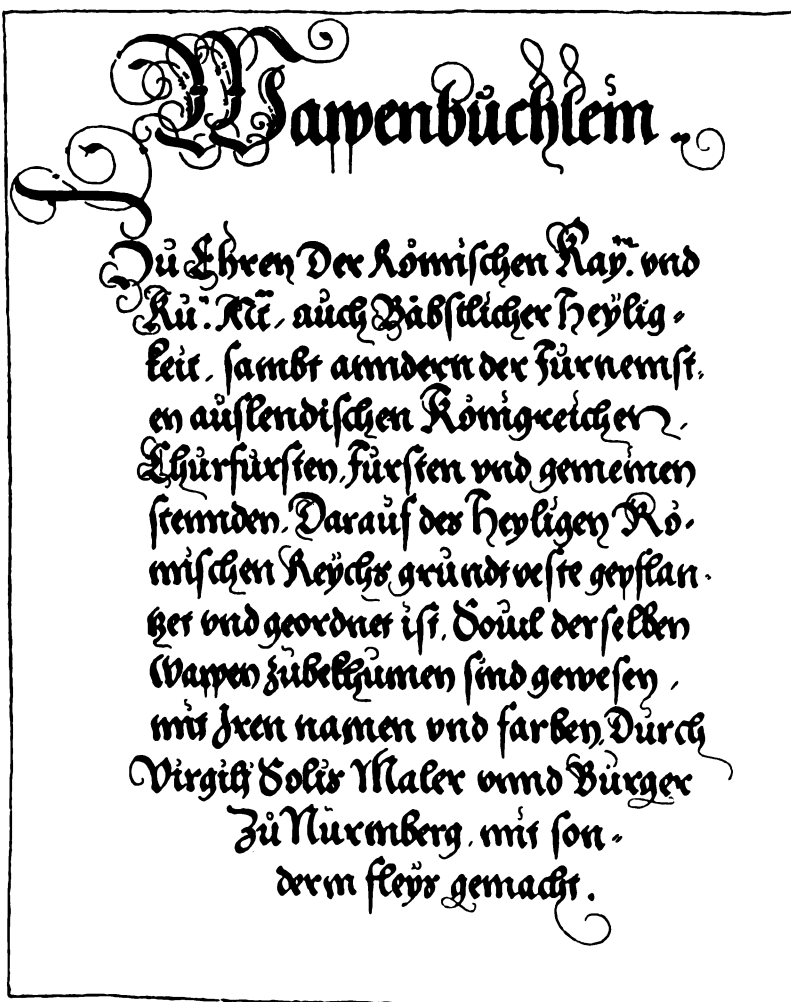 Wapenbüchlein.
Zů Ehren Der Römischen Kay: vnd
Kü: Mt, auch Bäbstlicher Heylig-
keit, sambt anndern der Fürnemst,
en auslendischen Königreichen,
Churfürsten, Fürsten vnd gemeinen
stennden, Darauf des Heyligen Rö-
mischen Reychs grundtveste gepflan-
tzet vnd geordnet ist, Souil derselben
Wappen zubekhumen sind gewesen,
mit Jren namen vnd farben, Durch
Virgilj Solis Maler vnnd Burger
Zů Nürmberg, mit son-
derm fleys gemacht.